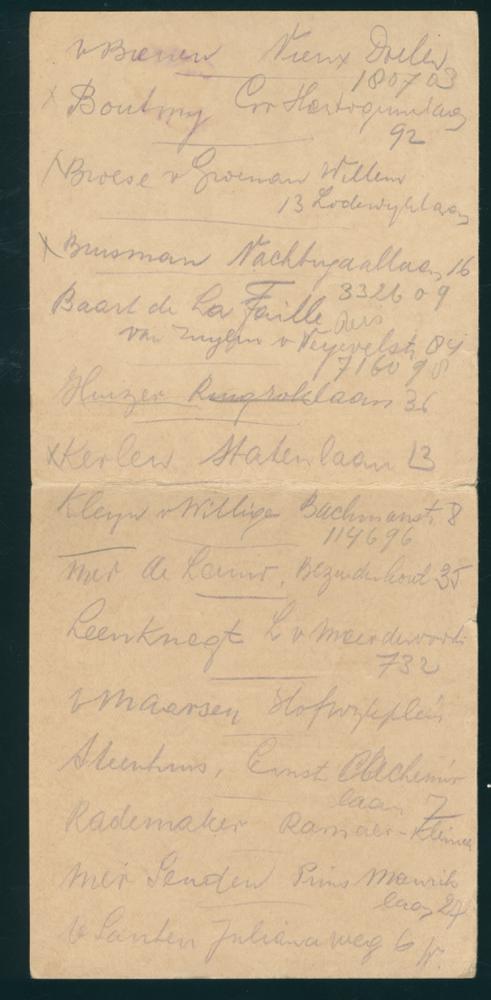 v Bienen Vieux Doelen
180703
x Boutmy Cor Hertoginnelaan
92
x Broese v Groenau Willem
13 Lodewijklaan
x Brusman Nachtegaallaan 16
Baart de La Faille 332609
van Zuylen v Nyeveltstr 84
716098
Huizer laan 36
x Kerlen Statenlaan 13
Kleyn v Willigen Bachmanstr. 8
114696
Mer de , Bezuidenhout 35
Leenknegt L v Meerdervoort
732
v Maarsen Hofwijkplein
Steenhuis, Ernst
laan 7
Rademaker Ramaer-Kleine
Mer Senden Prins Maurits
laan 27
v Santen Julianaweg 6